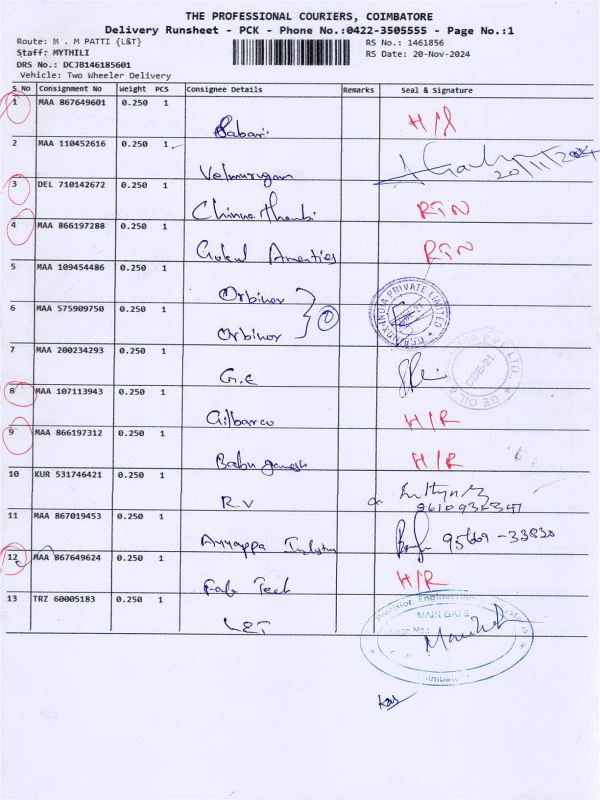 THE PROFESSIONAL COURIERS, COIMBATORE
Delivery Runsheet - PCK - Phone No.:0422-3505555 - Page No.:1
Route: M . M PATTI {L&T}
RS No.: 1461856
Staff: MYTHILI
RS Date: 20-Nov-2024
DRS No.: DCJB146185601
Vehicle: Two Wheeler Delivery
S No Consignment No Weight PCS Consignee Details Remarks Seal & Signature
1 MAA 867649601 0.250 1
Sabari H/R
2 MAA 110452616 0.250 1
Velmurugan 20/11/2024
3 DEL 710142672 0.250 1
Chinna thambi RTN
4 MAA 866197288 0.250 1
Gokul Amenties RTN
5 MAA 109454486 0.250 1
Orbinox
INDIA PRIVATE LIMITED
6 MAA 575909750 0.250 1
Orbinox
7 MAA 200234293 0.250 1
G.E
GE OIL & CBE-21 PVT. LTD.
8 MAA 107113943 0.250 1
Gilbarco H/R
9 MAA 866197312 0.250 1
Babu ganesh H/R
10 KUR 531746421 0.250 1
R.V
11 MAA 867019453 0.250 1
Ayyappa Industry 95669-33830
12 MAA 867649624 0.250 1
Fab Tech H/R
13 TRZ 60005183 0.250 1
L&T
Precision Engineering
MAIN GATE